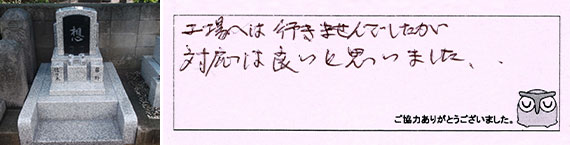 想
工場へは行きませんでしたが
対応は良いと思いました、
ご協力ありがとうございました。